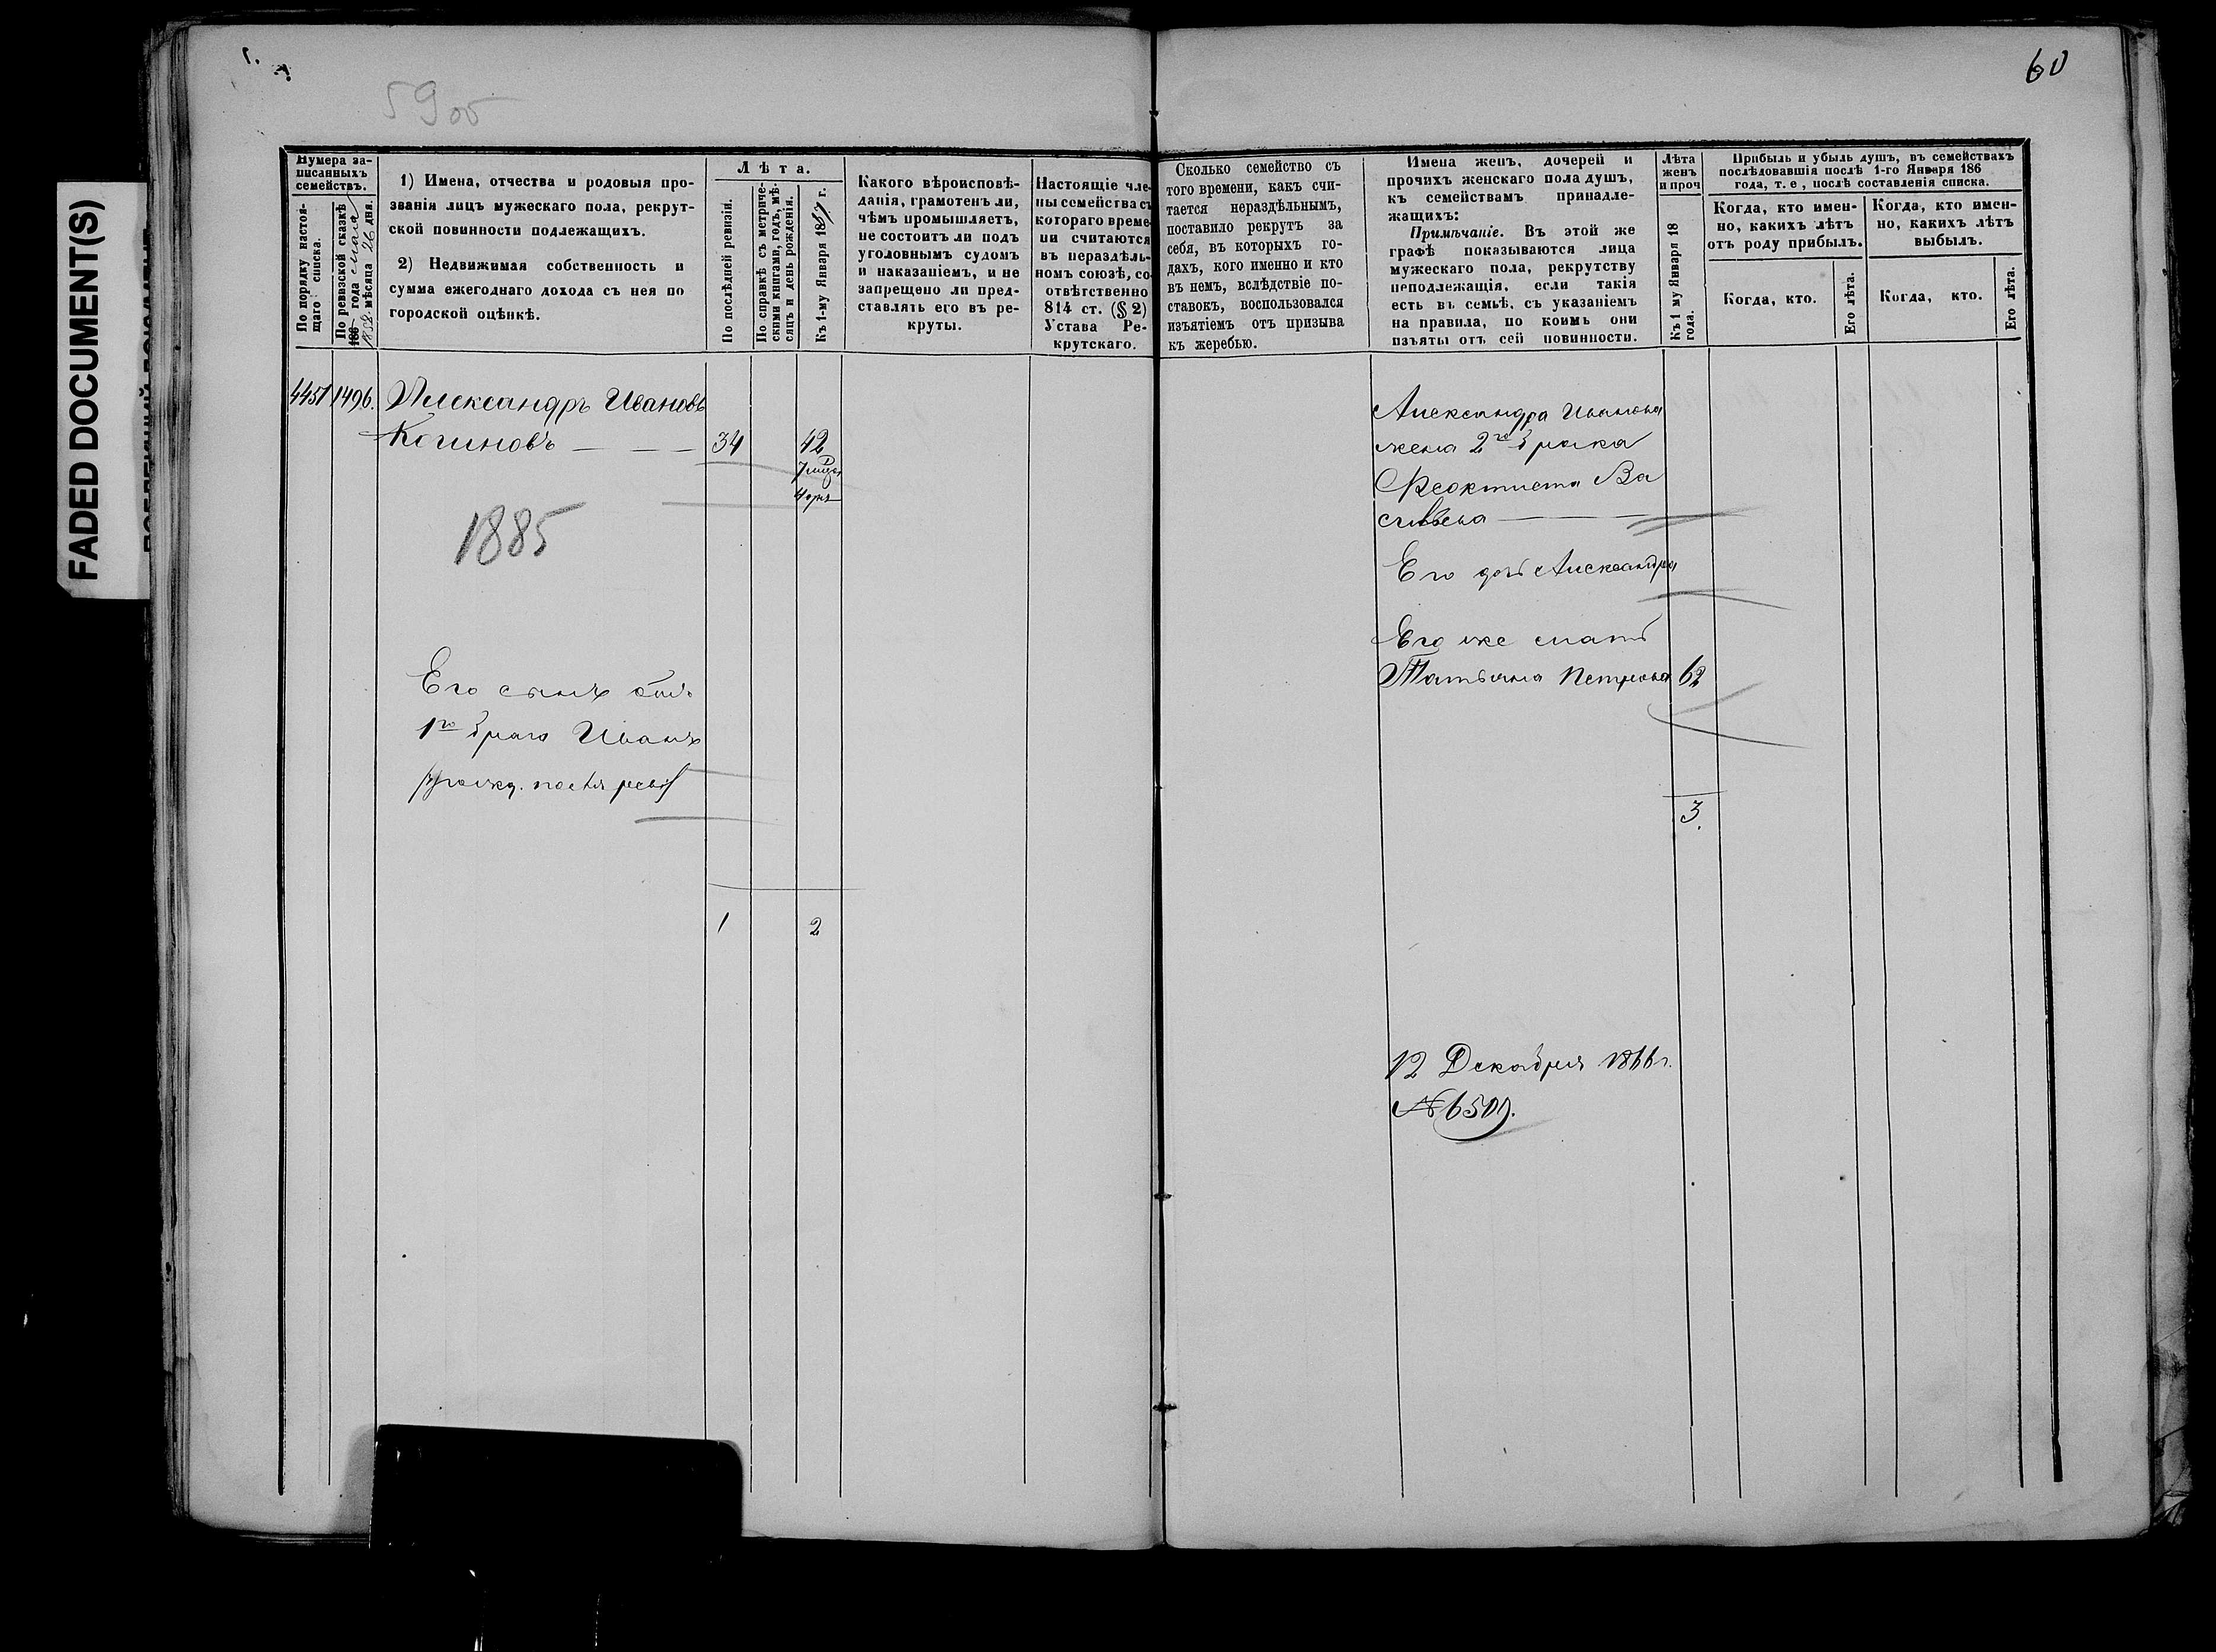 60
5900
FADED DOCUMENT(S)
Нумера за-
писанныхъ
семействъ.
По порядку настоя-
щаго списка.
По ревизской сказкѣ
186 года мая
1858. мѣсяца 26 дня.
1) Имена, отчества и родовыя про-
званія лицъ мужескаго пола, рекрут-
ской повинности подлежащихъ.
2) Недвижимая собственность и
сумма ежегоднаго дохода съ нея по
городской оцѣнкѣ.
Лѣта.
По послѣдней ревизіи.
По справкѣ съ метриче-
скими книгами, годъ, мѣ-
сяцъ и день рожденія.
Къ 1-му Января 1867 г.
Какого вѣроисповѣ-
данія, грамотенъ ли,
чѣмъ промышляетъ,
не состоитъ ли подъ
уголовнымъ судомъ
и наказаніемъ, и не
запрещено ли пред-
ставлять его въ ре-
круты.
Настоящіе чле-
ны семейства съ
котораго време-
ни считаются
въ нераздѣль-
номъ союзѣ, со-
отвѣтственно
814 ст. (§ 2)
Устава Ре-
крутскаго.
Сколько семейство съ
того времени, какъ счи-
тается нераздѣльнымъ,
поставило рекрутъ за
себя, въ которыхъ го-
дахъ, кого именно и кто
въ немъ, вслѣдствіе по-
ставокъ, воспользовался
изъятіемъ отъ призыва
къ жеребью.
Имена женъ, дочерей и
прочихъ женскаго пола душъ,
къ семействамъ принадле-
жащихъ:
Примѣчаніе. Въ этой же
графѣ показываются лица
мужескаго пола, рекрутству
неподлежащія, если такія
есть въ семьѣ, съ указаніемъ
на правила, по коимъ они
изъяты отъ сей повинности.
Лѣта
женъ
и проч
Къ 1 му Января 18
года.
Прибыль и убыль душъ, въ семействахъ
послѣдовавшія послѣ 1-го Января 186
года, т. е, послѣ составленія списка.
Когда, кто имен-
но, какихъ лѣтъ
отъ роду прибылъ.
Когда, кто.
Его лѣта.
Когда, кто имен-
но, какихъ лѣтъ
выбылъ.
Когда, кто.
Его лѣта.
4451 1496. Александръ Ивановъ
Кочиновъ 34 42
1885
Его сынъ отъ
1го брака Иванъ
рожд. послѣ ревиз
1 2
Александра Иванова
жена 2го брака
Феоктиста Ва
сильева
Его дочь Александра
Его же мать
Татьяна Петрова 62
3.
12 Декабря 1866 г.
№ 6509.